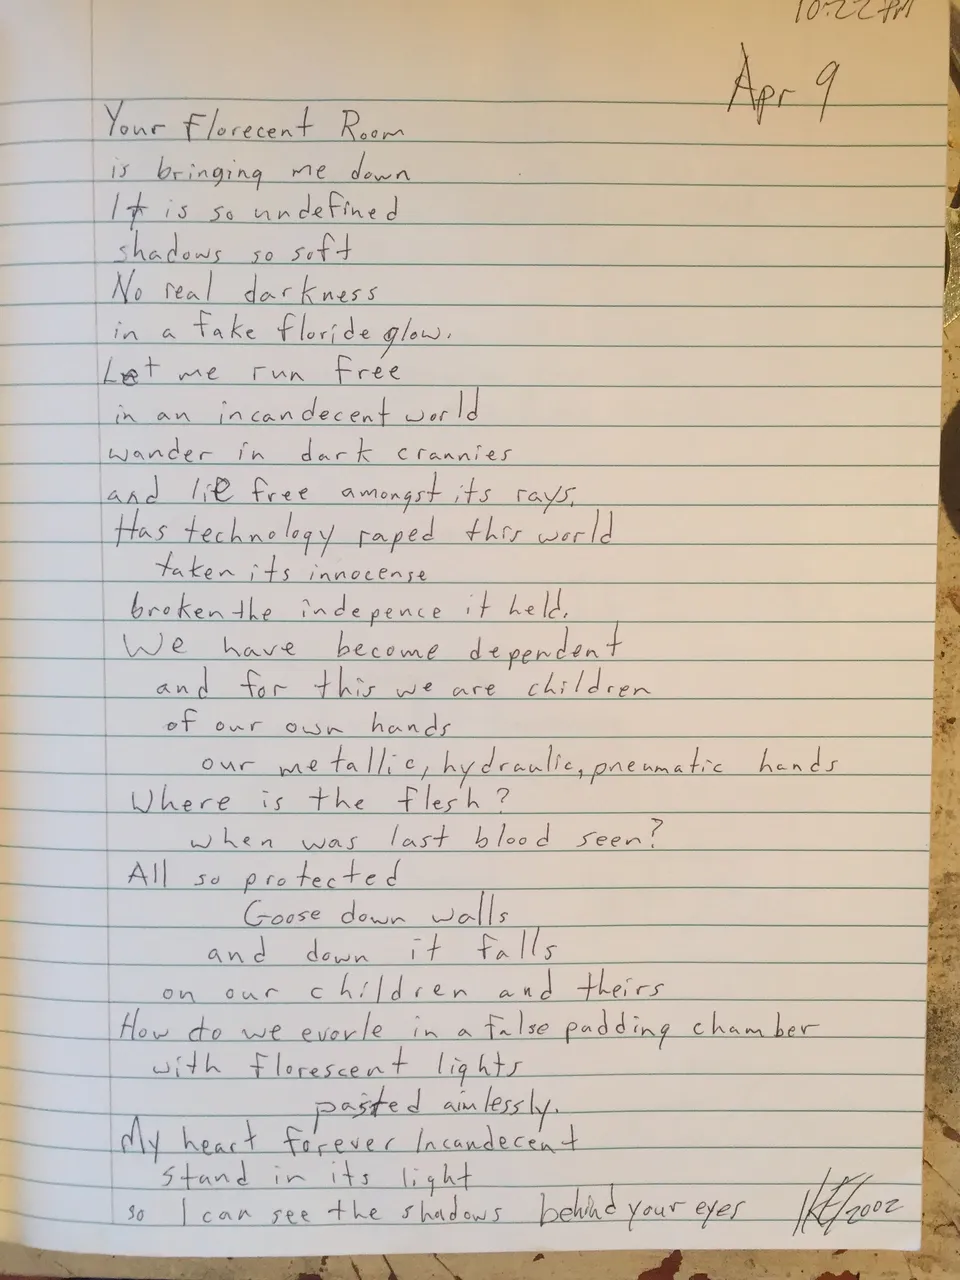 10:22 PM
Apr 9
Your Florecent Room
is bringing me down
It is so undefined
shadows so soft
No real darkness
in a fake floride glow.
Let me run free
in an incandecent world
wander in dark crannies
and lie free amongst its rays.
Has technology raped this world
taken its innocense
broken the indepence it held.
We have become dependent
and for this we are children
of our own hands
our metallic, hydraulic, pneumatic hands
Where is the flesh?
when was last blood seen?
All so protected
Goose down walls
and down it falls
on our children and theirs
How do we evorle in a false padding chamber
with florescent lights
pasted aimlessly.
My heart forever Incandecent
stand in its light
so I can see the shadows behind your eyes
2002